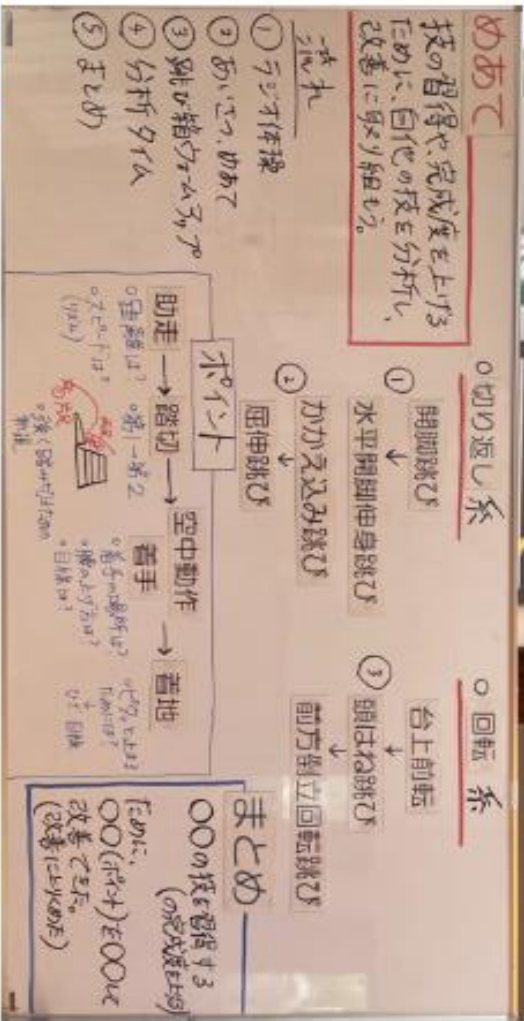 めあて
技の習得や、完成度を上げる
ために、自他の技を分析し、
改善に取り組もう。
流れ
① ラジオ体操
② あいさつ、めあて
③ 跳び箱ウォームアップ
④ 分析タイム
⑤ まとめ
○切り返し系
① 開脚跳び
↓
水平開脚伸身跳び
② かかえ込み跳び
↓
屈伸跳び
○ 回転系
台上前転
↓
③ 頭はね跳び
↓
前方倒立回転跳び
ポイント
助走 → 踏切 → 空中動作 → 着地
着手
○距離は?
○スピードは?
(リズム)
○第1 第2
○強く踏み切るための
○着手の場所は?
○腰の上げ方は?
○目線は?
○ピタッと止まる
ためには?
ひざ
まとめ
○○の技を習得する
(の完成度を上げる)
ために、
○○(ポイント)を○○して
改善できた。
(改善にとりくめた)